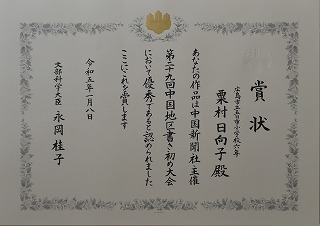 賞状
広島市立五日市小学校六年
栗村日向子殿
あなたの作品は中国新聞社主催
第二十九回中国地区書き初め大会
において優秀であると認められました
ここにこれを賞します
令和五年一月八日
文部科学大臣 永岡桂子